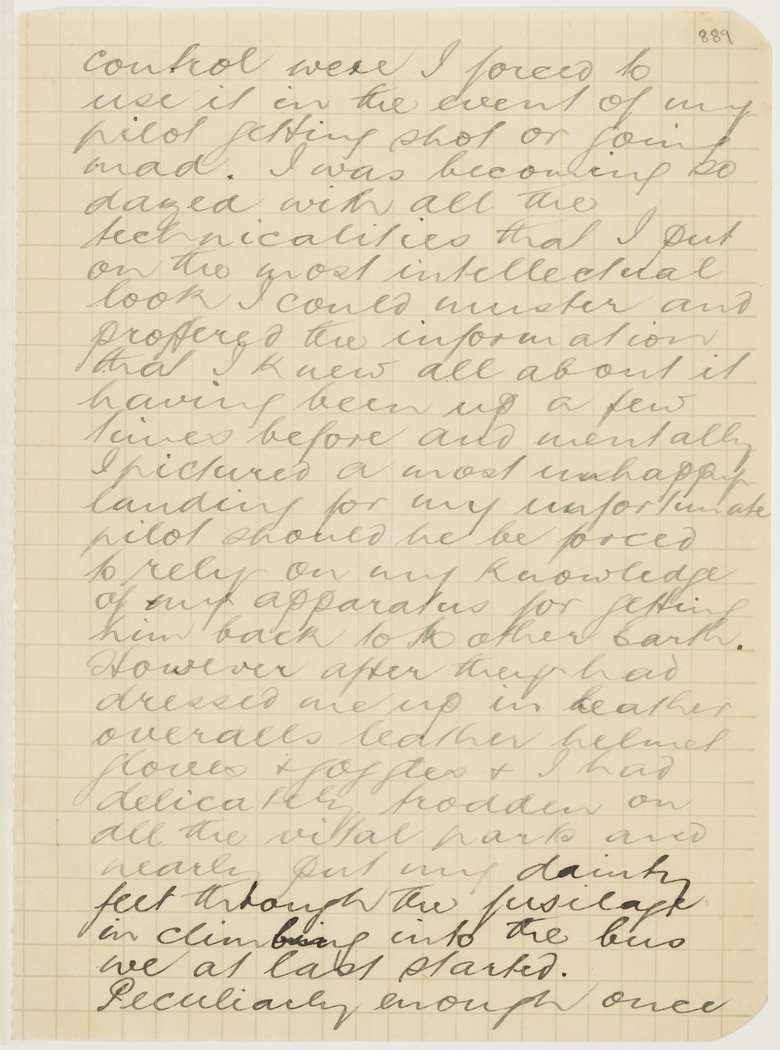 889
control were I forced to
use it in the event of my
pilot getting shot or going
mad. I was becoming so
dazed with all the
technicalities that I put
on the most intellectual
look I could muster and
proffered the information
that I knew all about it
having been up a few
times before and mentally
I pictured a most unhappy
landing for my unfortunate
pilot should he be forced
to rely on my knowledge
of my apparatus for getting
him back to Mother Earth.
However after they had
dressed me up in leather
overalls leather helmet
gloves + goggles + I had
delicately trodden on
all the vital parts and
nearly put my dainty
feet through the fusilage
in climbing into the bus
we at last started.
Peculiarly enough once